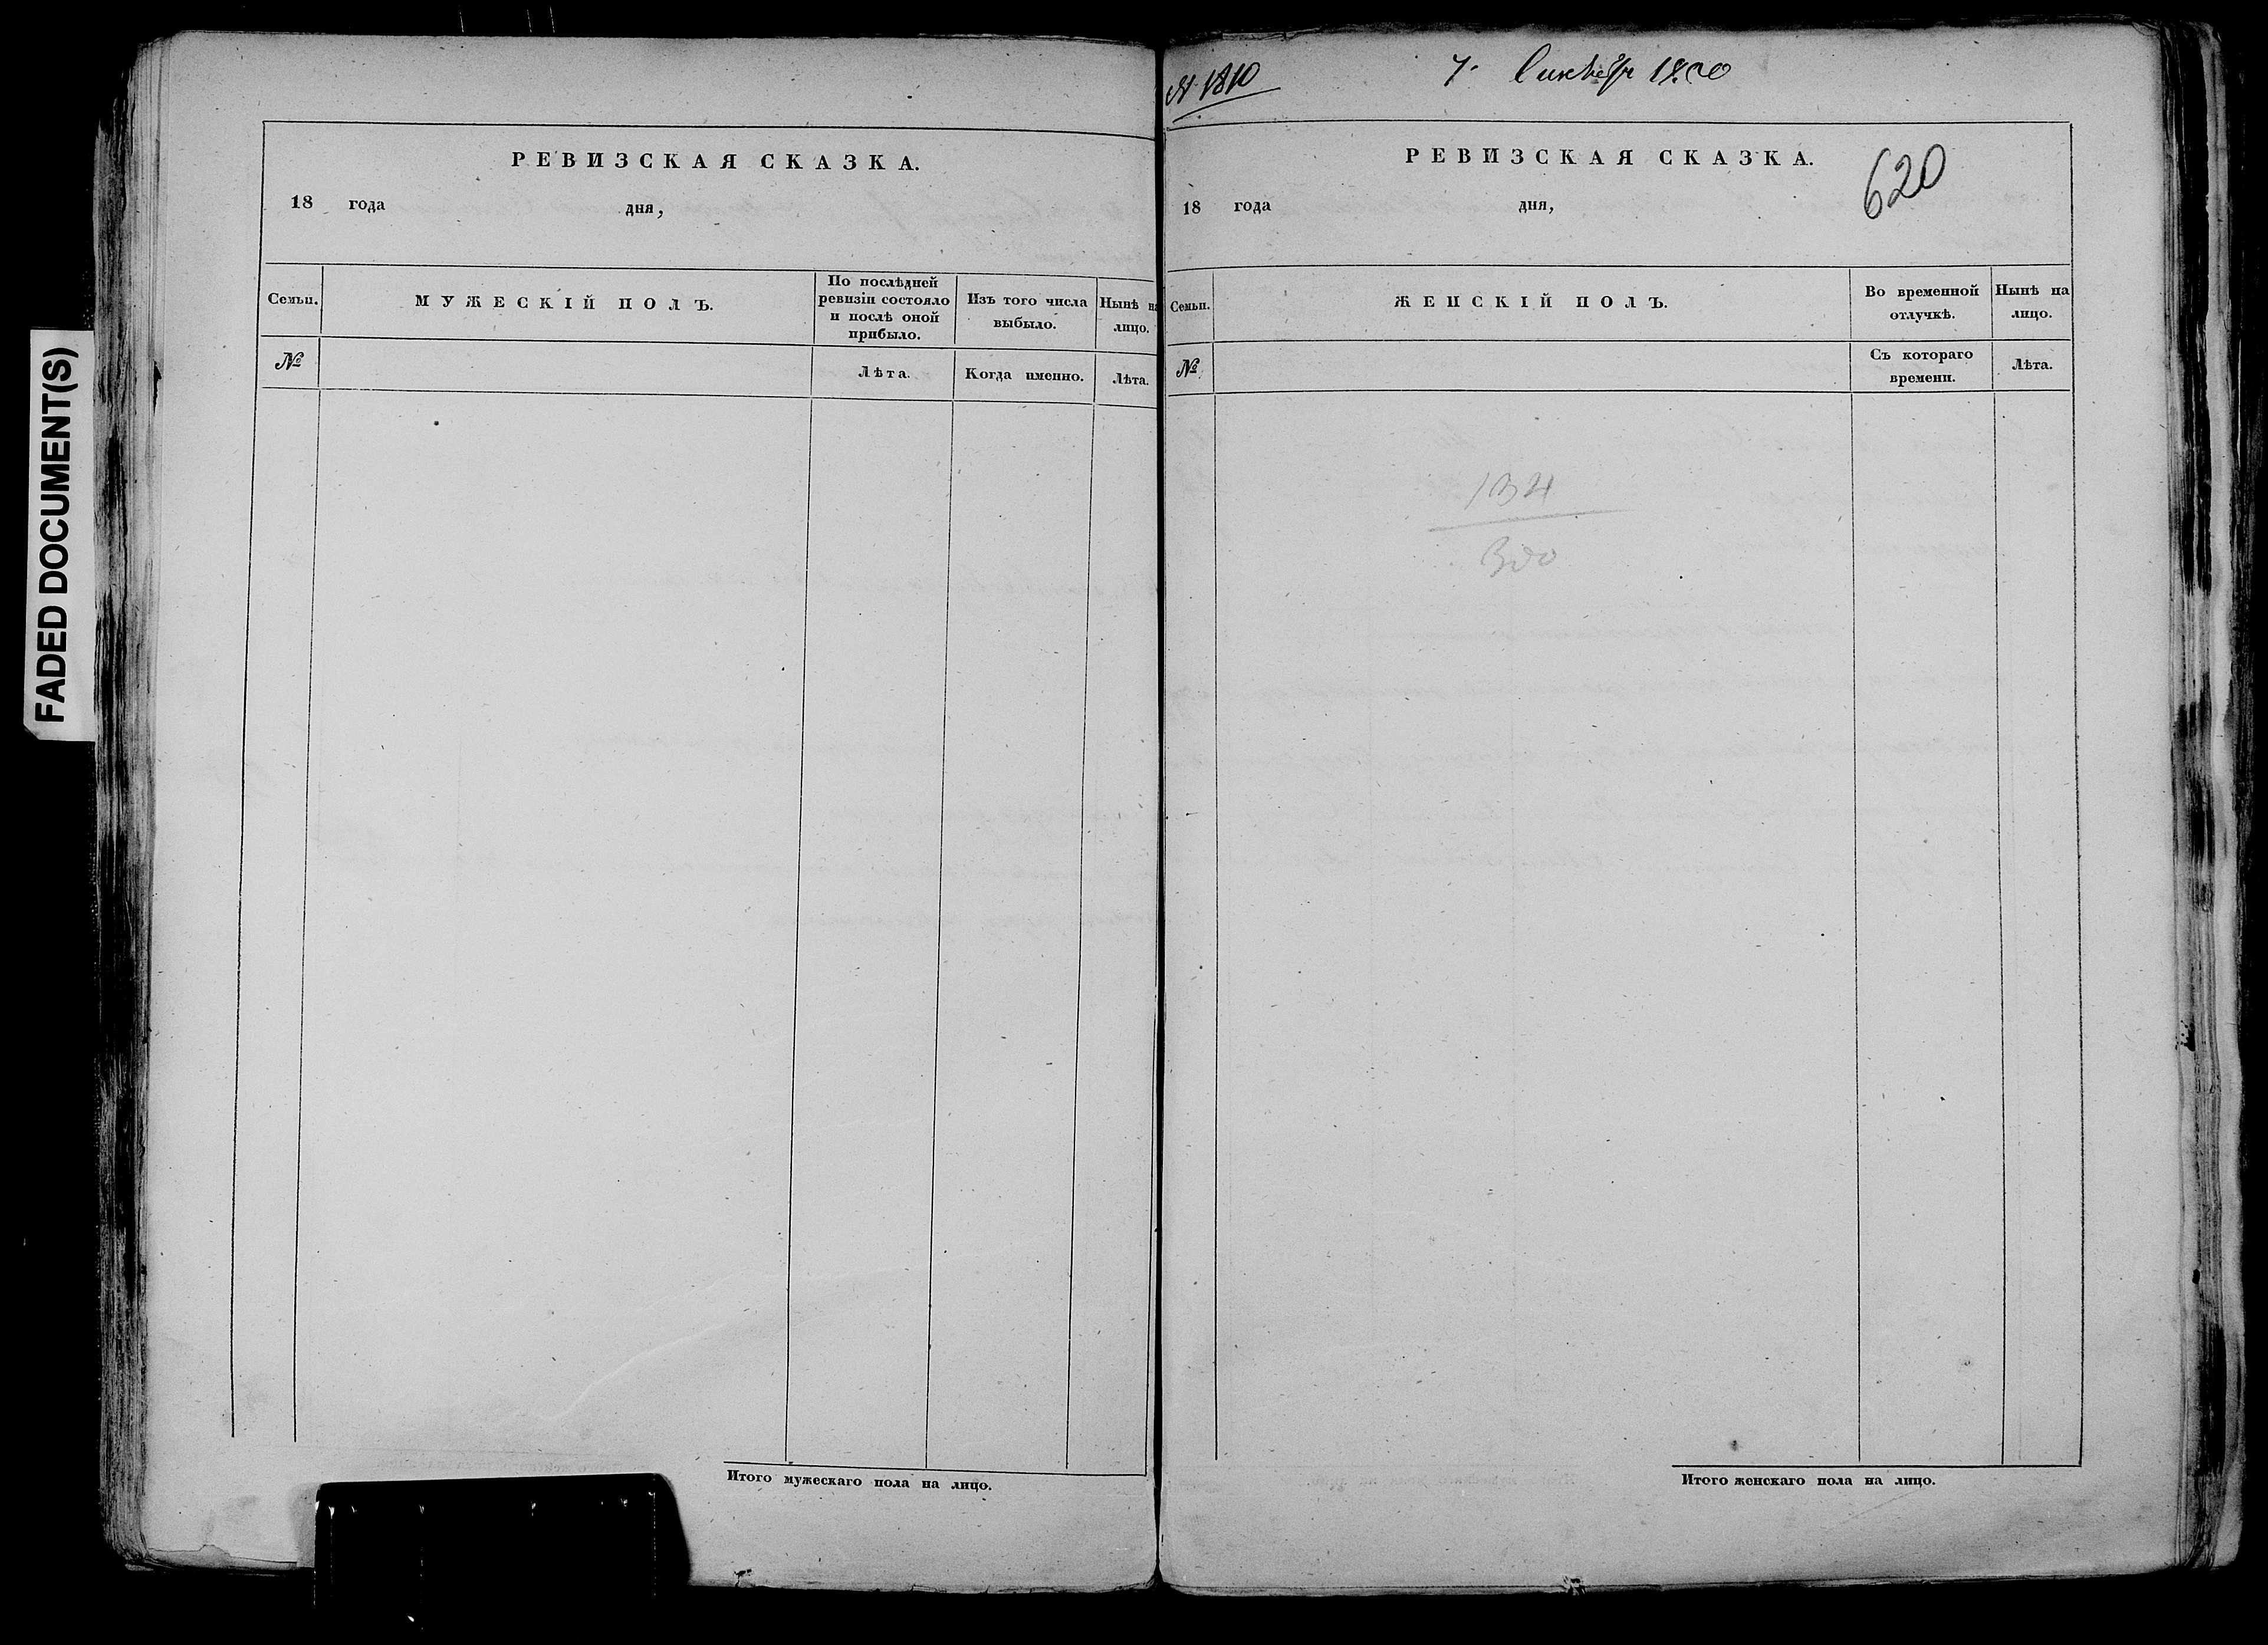 FADED DOCUMENT(S)
РЕВИЗСКАЯ СКАЗКА.
18 года дня,
Семьи. МУЖЕСКІЙ ПОЛЪ. По послѣдней ревизіи состояло и послѣ оной прибыло. Изъ того числа выбыло. Нынѣ на лицо.
№ Лѣта. Когда именно. Лѣта.
Итого мужескаго пола на лицо.
7.
620
РЕВИЗСКАЯ СКАЗКА.
18 года дня,
Семьи. ЖЕНСКІЙ ПОЛЪ. Во временной отлучкѣ. Нынѣ на лицо.
№ Съ котораго времени. Лѣта.
134
Итого женскаго пола на лицо.